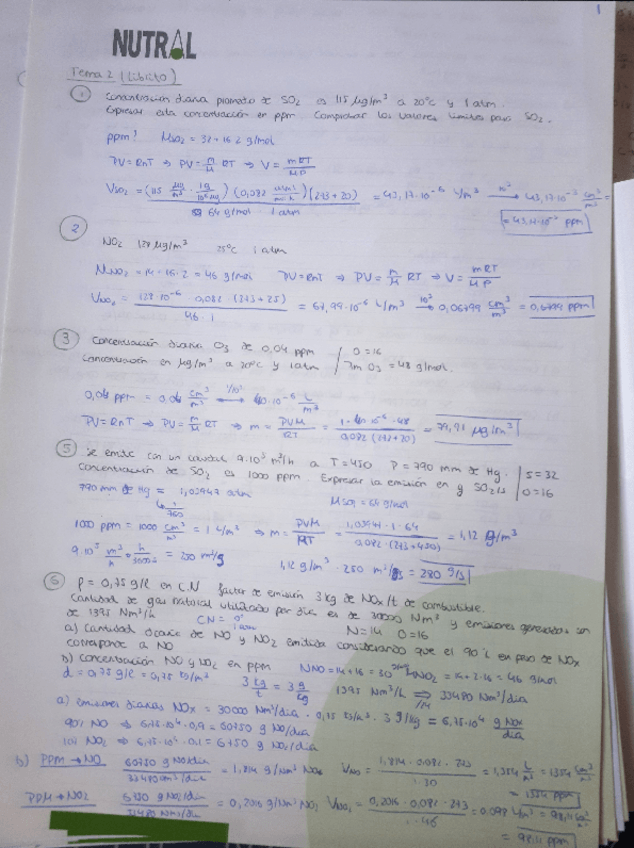 1
NUTRAL
Tema 2 (Librito)
① Concentración diaria promedio de SO₂ es 115 µg/m³ a 20°C y 1 atm.
Expresar esta concentración en ppm. Comprobar los valores límites para SO₂.
ppm? M SO₂ = 32+16·2 g/mol
PV = RnT ⇒ PV = m/M RT ⇒ V = mRT/MP
V SO₂ = (115 µg/m³ · 1g/10⁶µg)(0,082 atm·l/mol·k)(273+20) / 64 g/mol · 1 atm = 43,17·10⁻⁶ L/m³ →10³ 43,17·10⁻³ cm³/m³ =
= 43,17·10⁻³ ppm
②
NO₂ 128 µg/m³ 25°C 1 atm
M NO₂ = 14+16·2 = 46 g/mol PV = RnT ⇒ PV = m/M RT ⇒ V = mRT/MP
V NO₂ = 128·10⁻⁶ · 0,082 · (273+25) / 46·1 = 67,99·10⁻⁶ L/m³ →10³ 0,06799 cm³/m³ = 0,6799 ppm
③ Concentración diaria O₃ de 0,04 ppm / O=16
Concentración en µg/m³ a 20°C y 1 atm / M O₃ = 48 g/mol.
0,04 ppm = 0,04 cm³/m³ →1/10³ 40·10⁻⁶ L/m³
PV = RnT ⇒ PV = m/M RT ⇒ m = PVM/RT = 1·40·10⁻⁶·48 / 0,082·(273+20) = 79,91 µg/m³
⑤ Se emite con un caudal 9·10⁵ m³/h a T=450 P = 790 mm de Hg. S=32
Concentración de SO₂ es 1000 ppm. Expresar la emisión en g SO₂/s O=16
790 mm de Hg = 1,03947 atm M SO₂ = 64 g/mol
1/760
1000 ppm = 1000 cm³/m³ = 1 L/m³ ⇒ m = PVM/RT = 1,03947·1·64 / 0,082·(273+450) = 1,12 g/m³
9·10⁵ m³/h · h/3600s = 250 m³/s 1,12 g/m³ · 250 m³/s = 280 g/s
⑥ ρ = 0,75 g/l en C.N factor de emisión 3 kg de NOx/t de combustible.
Cantidad de gas natural utilizado por día es de 30000 Nm³ y emisiones generadas son
de 1395 Nm³/h CN = 0° 1 atm N=14 O=16
a) Cantidad diaria de NO y NO₂ emitida considerando que el 90% en peso de NOx
corresponde a NO
b) Concentración NO y NO₂ en ppm M NO = 14+16 = 30 g/mol M NO₂ = 14+2·16 = 46 g/mol
d = 0,75 g/l = 0,75 kg/m³ 3 kg/t = 3 g/kg 1395 Nm³/h ⇒ 33480 Nm³/día
a) Emisiones diarias NOx = 30000 Nm³/día · 0,75 kg/m³ · 3 g/kg = 6,75·10⁴ g NOx/día
90% NO ⇒ 6,75·10⁴ · 0,9 = 60750 g NO/día
10% NO₂ ⇒ 6,75·10⁴ · 0,1 = 6750 g NO₂/día
b) PPM → NO 60750 g NO/día / 33480 Nm³/día = 1,814 g/Nm³ V NO = 1,814·0,082·273 / 1·30 = 1,354 L/m³ = 1354 cm³/m³
= 1354 ppm
PPM → NO₂ 6750 g NO₂/día / 33480 Nm³/día = 0,2016 g/Nm³ NO₂ V NO₂ = 0,2016·0,082·273 / 1·46 = 0,098 L/m³ = 98,11 cm³/m³
= 98,11 ppm